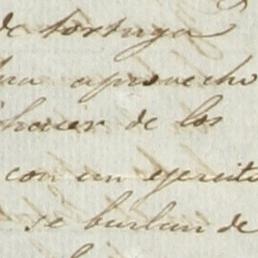 de tortuga
aprovecho
hacer de los
con un ejercito
se burlan de